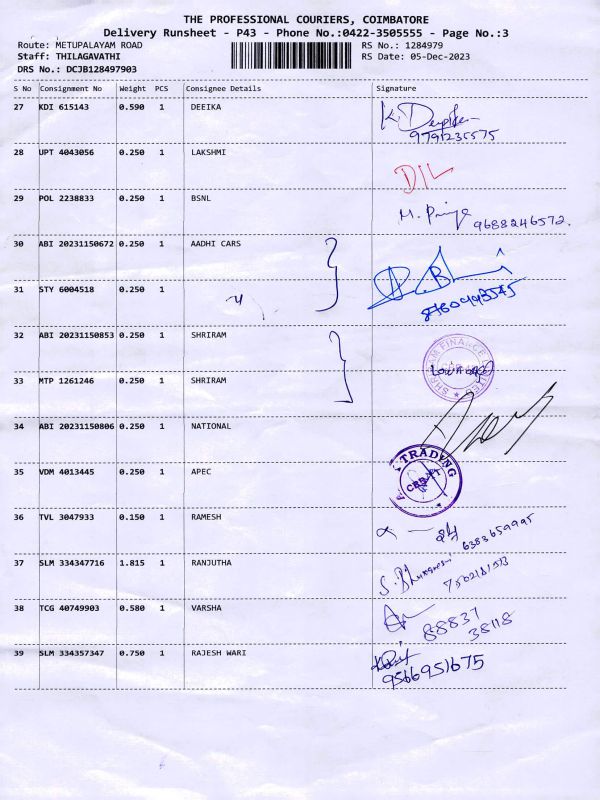 THE PROFESSIONAL COURIERS, COIMBATORE
Delivery Runsheet - P43 - Phone No.:0422-3505555 - Page No.:3
Route: METUPALAYAM ROAD RS No.: 1284979
Staff: THILAGAVATHI RS Date: 05-Dec-2023
DRS No.: DCJB128497903
S No Consignment No Weight PCS Consignee Details Signature
27 KDI 615143 0.590 1 DEEIKA
9791235575
28 UPT 4043056 0.250 1 LAKSHMI
29 POL 2238833 0.250 1 BSNL
M. Priya 9688246572.
30 ABI 20231150672 0.250 1 AADHI CARS
31 STY 6004518 0.250 1
32 ABI 20231150853 0.250 1 SHRIRAM
SHRIRAM FINANCE LIMITED
33 MTP 1261246 0.250 1 SHRIRAM
34 ABI 20231150806 0.250 1 NATIONAL
35 VDM 4013445 0.250 1 APEC
TRADYNG
36 TVL 3047933 0.150 1 RAMESH
6383659995
37 SLM 334347716 1.815 1 RANJUTHA
38 TCG 40749903 0.580 1 VARSHA
88837
38118
39 SLM 334357347 0.750 1 RAJESH WARI
9566951675